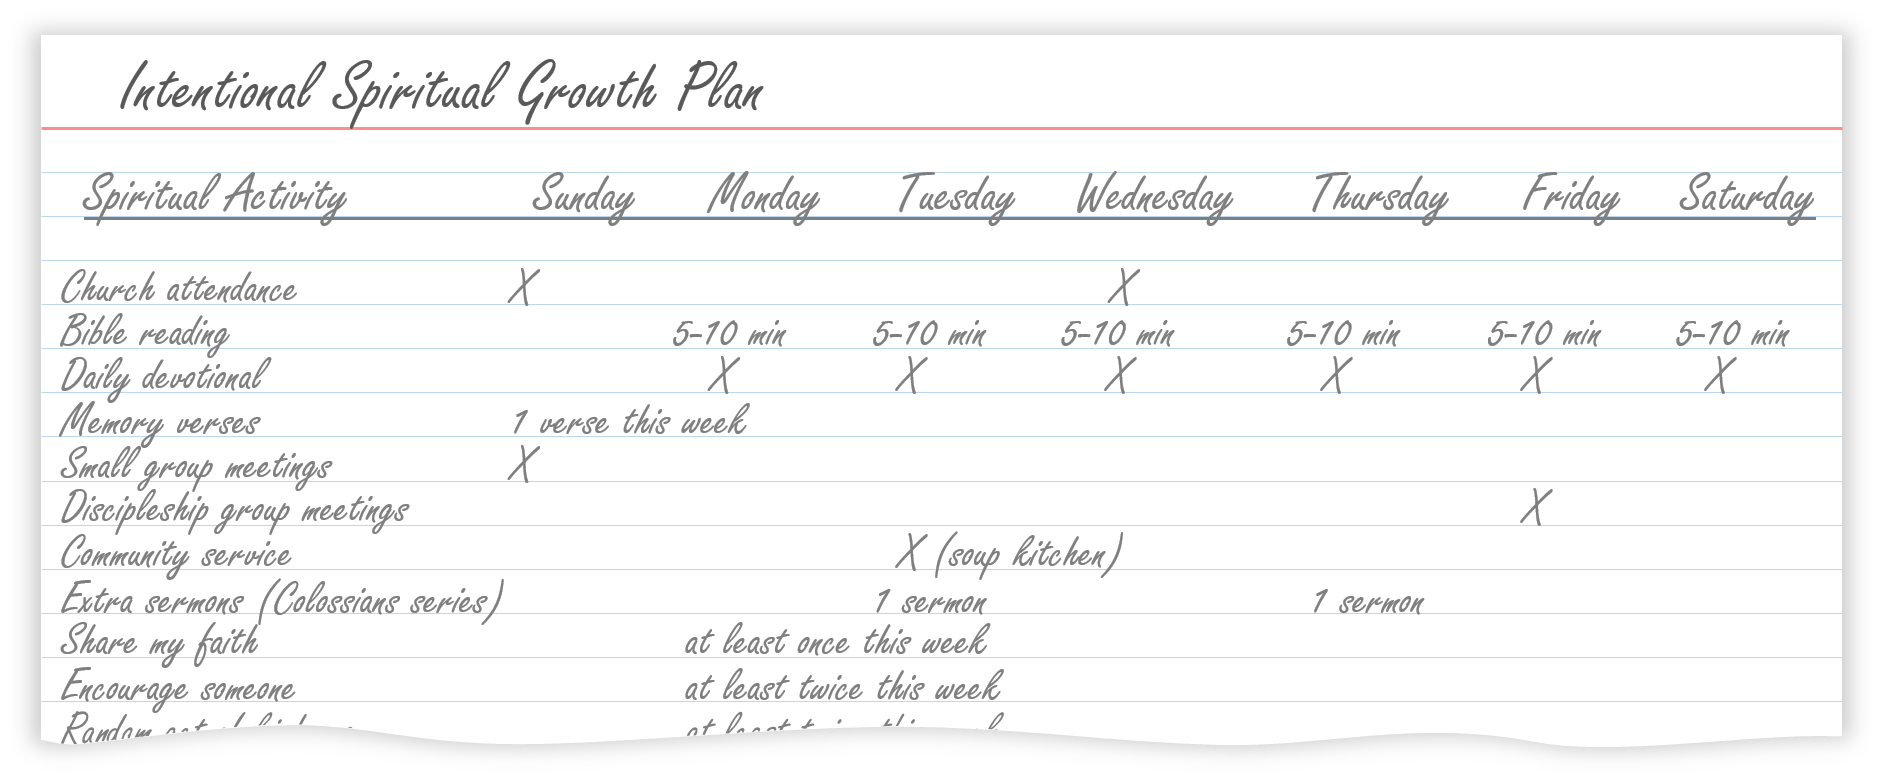 Intentional Spiritual Growth Plan
Spiritual Activity Sunday Monday Tuesday Wednesday Thursday Friday Saturday
Church attendance X X
Bible reading 5-10 min 5-10 min 5-10 min 5-10 min 5-10 min 5-10 min
Daily devotional X X X X X X
Memory verses 1 verse this week
Small group meetings X
Discipleship group meetings X
Community service X (soup kitchen)
Extra sermons (Colossians series) 1 sermon 1 sermon
Share my faith at least once this week
Encourage someone at least twice this week
Random at least